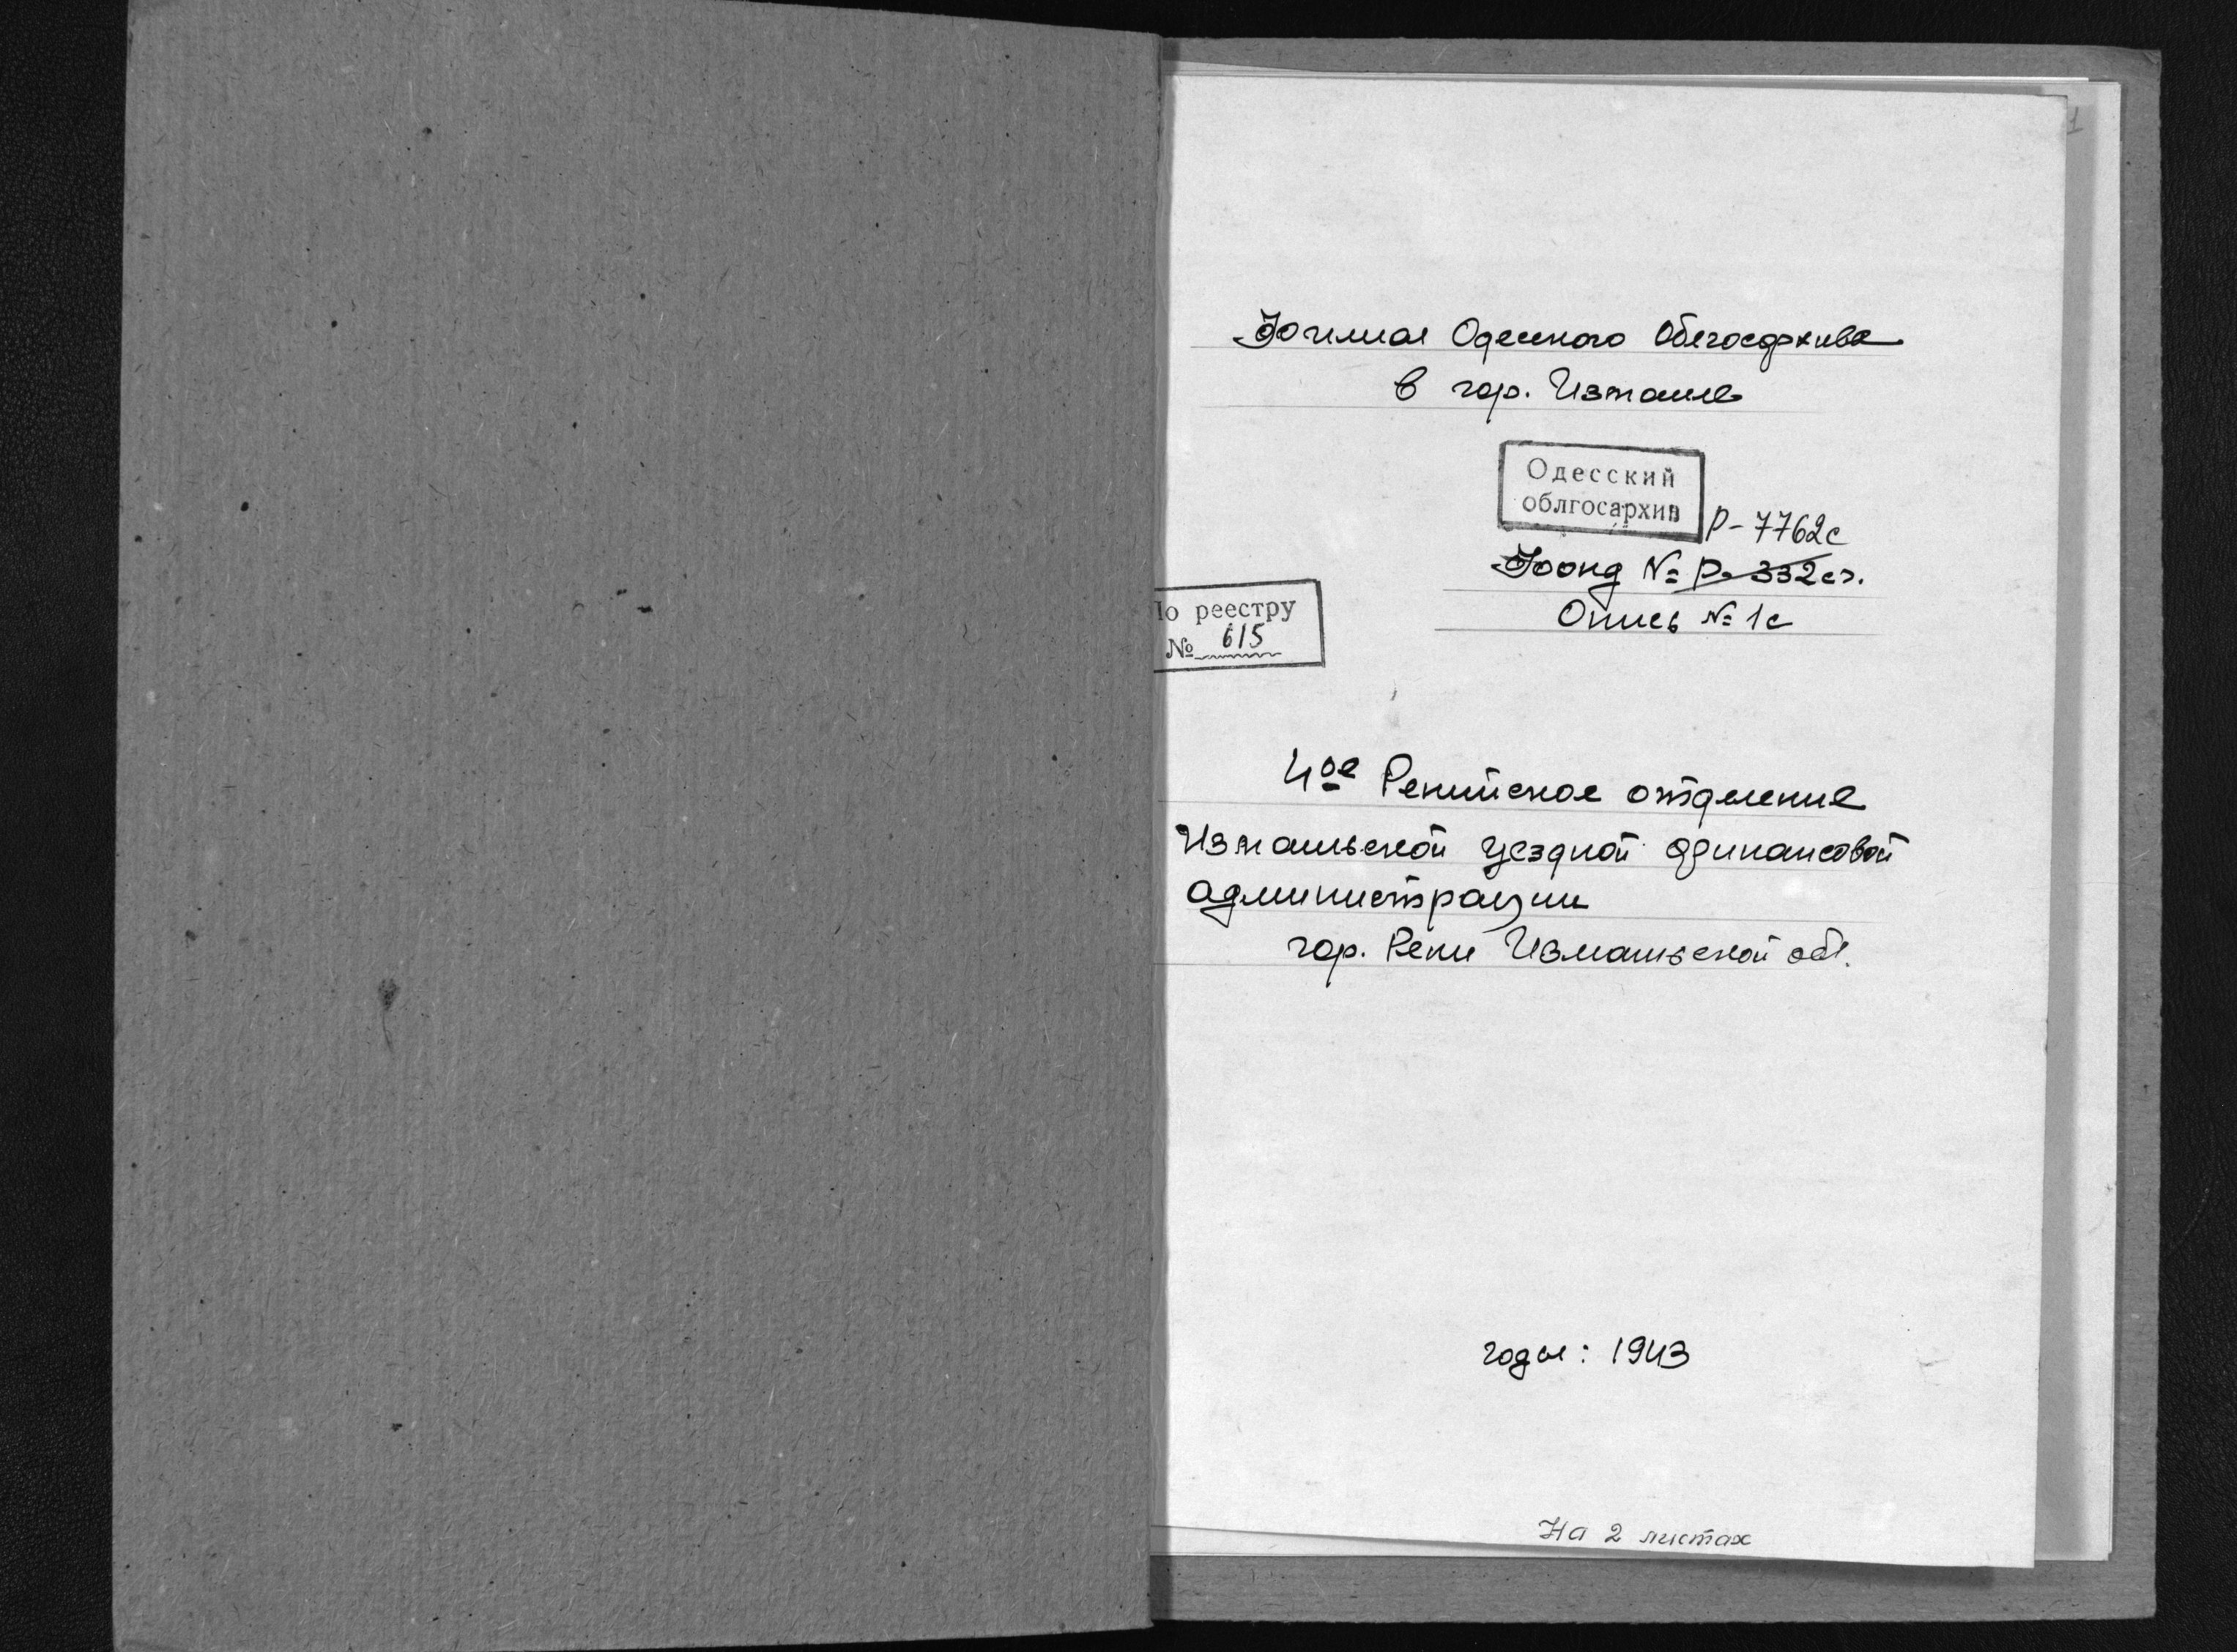 Филиал Одесского Облгосархива
в гор. Измаиле
Одесский
облгосархив
Р-7762с
Фонд № Р-332сч.
Опись № 1с
По реестру
№ 615
4ое Ренийское отделение
Измаильской уездной финансовой
администрации
гор. Рени Измаильской обл.
годы: 1943
На 2 листах
1